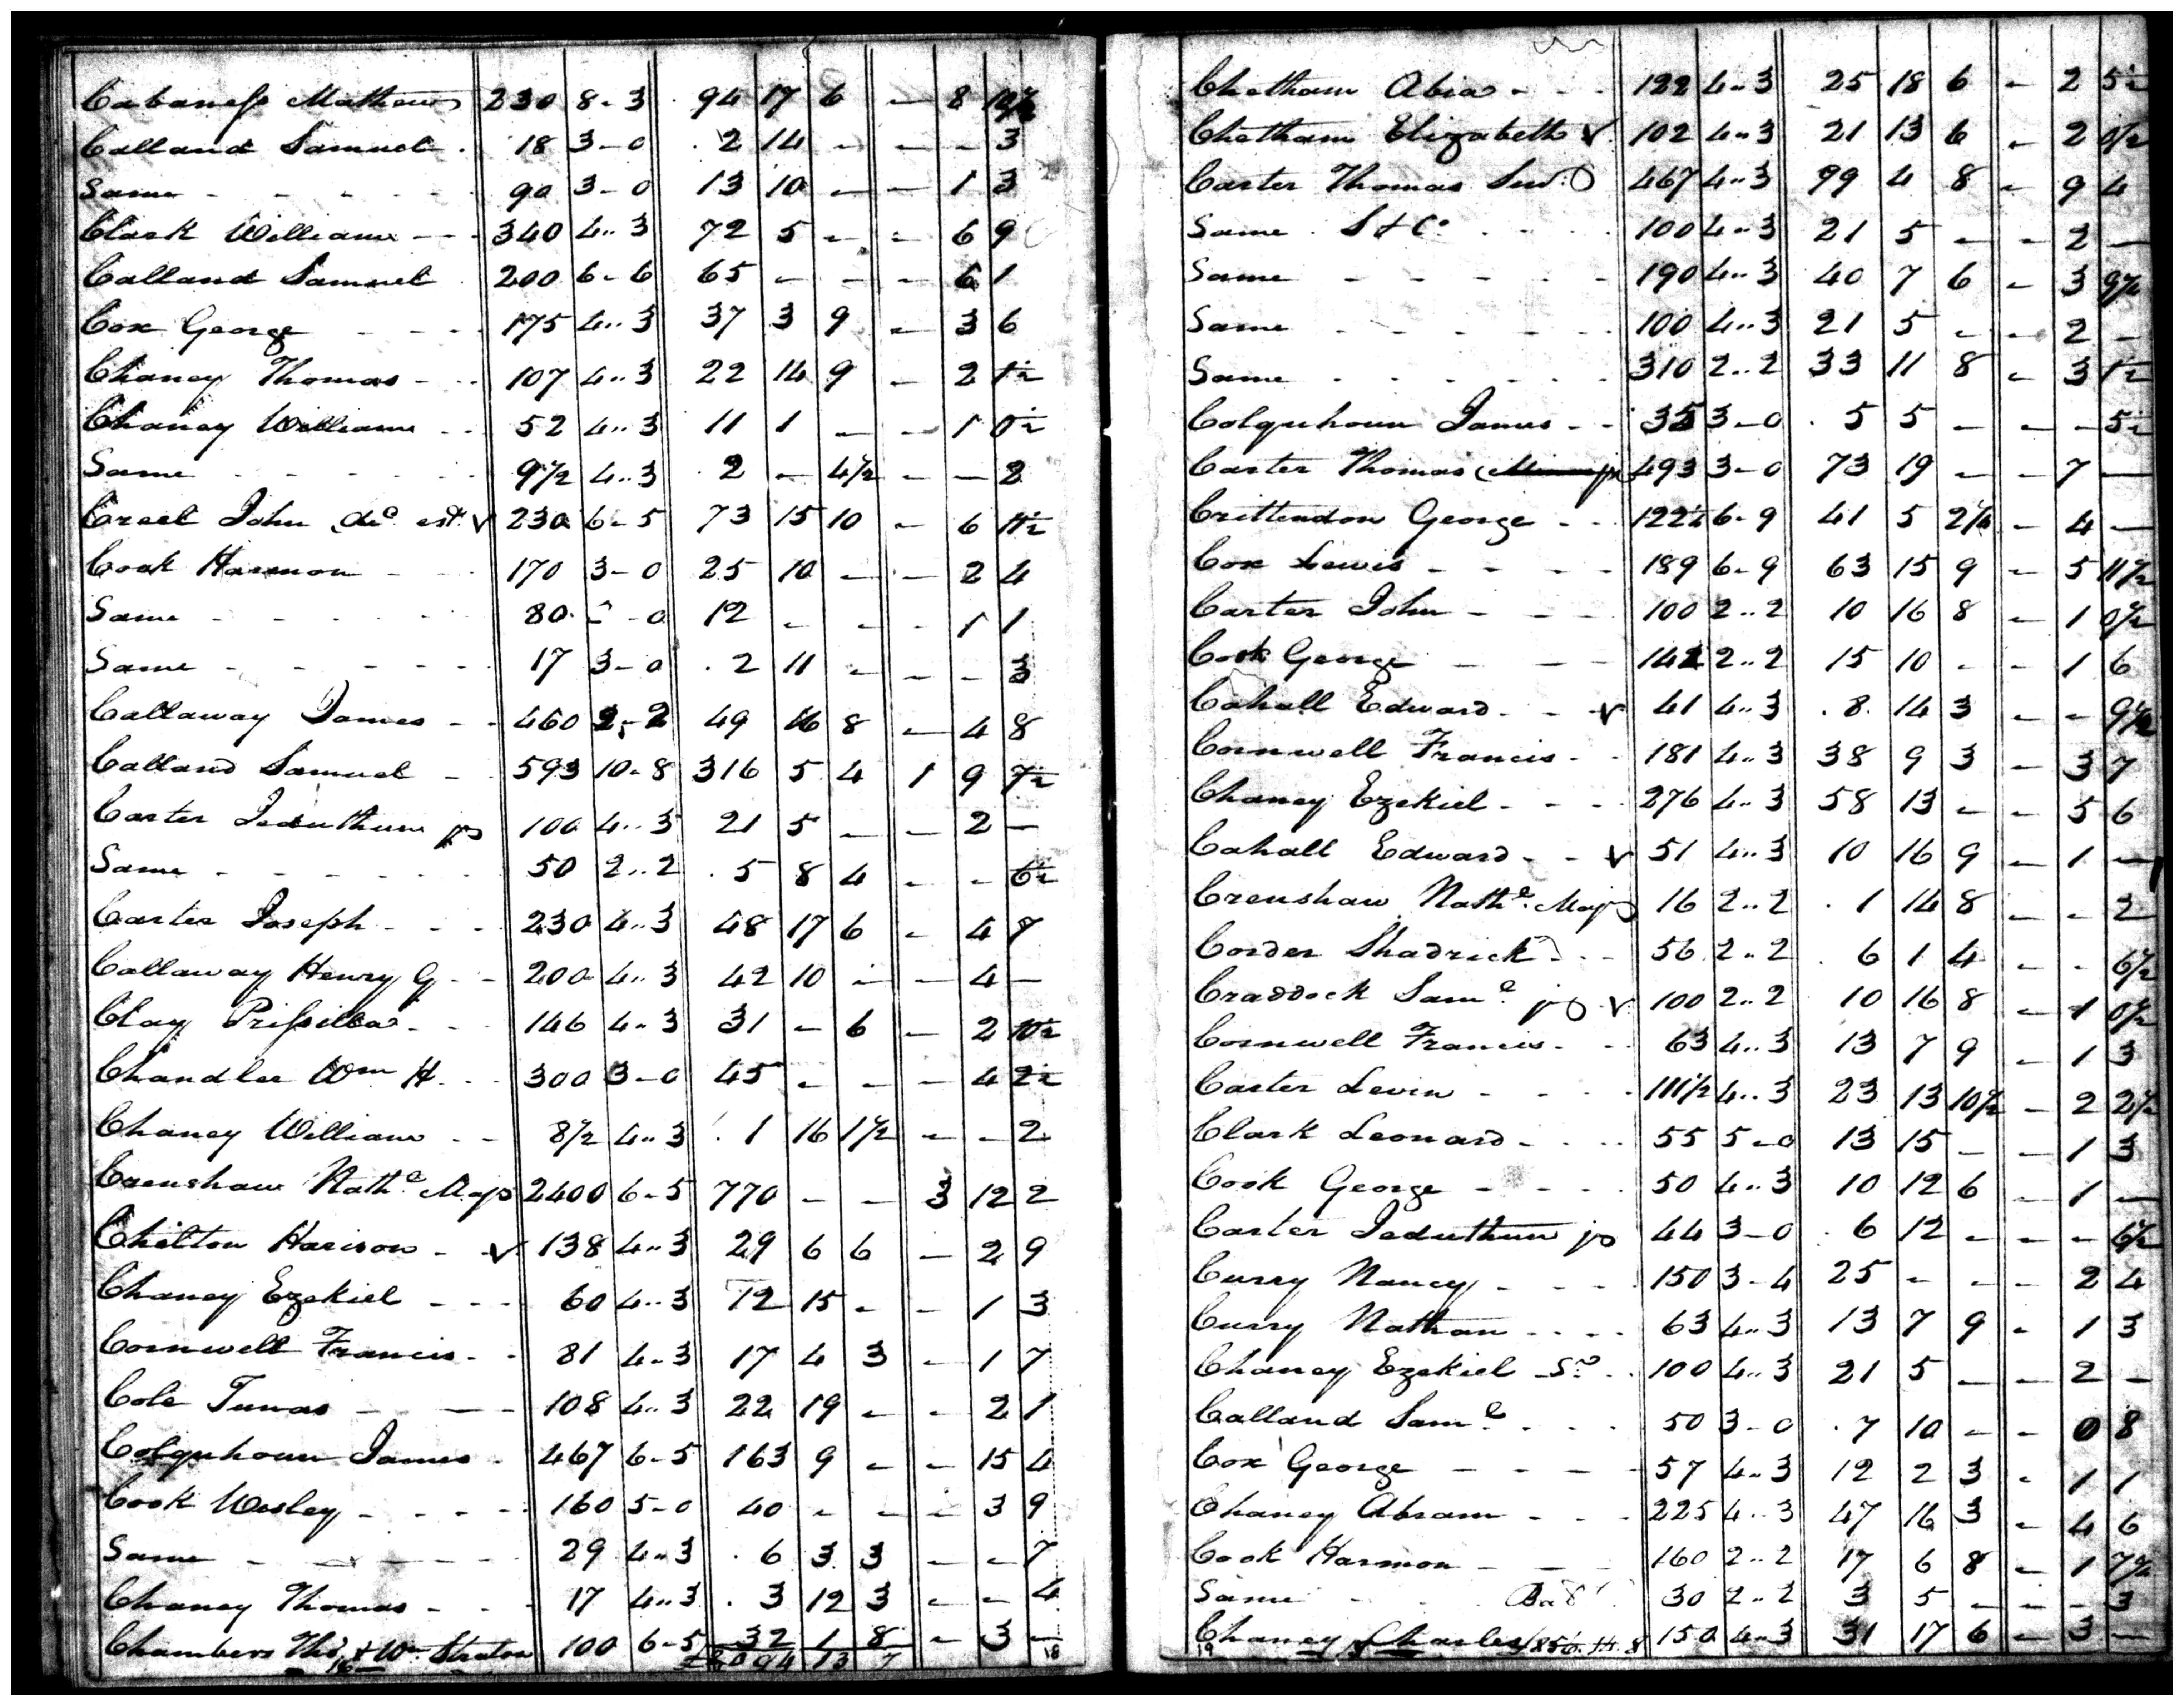 Cabaness Mathew 230 8-3 94 17 6 - 8 10½
Calland Samuel 18 3-0 2 14 - - - 3
Same 90 3-0 13 10 - - 1 3
Clark William 340 4..3 72 5 - - 6 9
Calland Samuel 200 6-6 65 - - - 6 1
Cox George 175 4..3 37 3 9 - 3 6
Chaney Thomas 107 4..3 22 14 9 - 2 1½
Chaney William 52 4..3 11 1 - - 1 0½
Same 9½ 4..3 2 - 4½ - - 2
Creel John decd est. v 230 6-5 73 15 10 - 6 11½
Cook Harmon 170 3-0 25 10 - - 2 4
Same 80 - -0 12 - - - 1 1
Same 17 3-0 2 11 - - - 3
Callaway James 460 2-2 49 16 8 - 4 8
Calland Samuel 593 10-8 316 5 4 1 9 7½
Carter Jeduthun jr 100 4..3 21 5 - - 2 -
Same 50 2..2 5 8 4 - - 6½
Carter Joseph 230 4..3 48 17 6 - 4 7
Callaway Henry G 200 4..3 42 10 - - 4 -
Clay Prissilla 146 4..3 31 - 6 - 2 10½
Chandler Wm H. 300 3-0 45 - - - 4 2½
Chaney William 8½ 4..3 1 16 1½ - - 2
Crenshaw Nathl Majr 2400 6-5 770 - - 3 12 2
Chilton Harison v 138 4..3 29 6 6 - 2 9
Chaney Ezekiel 60 4..3 12 15 - - 1 3
Cornwell Francis 81 4-3 17 4 3 - 1 7
Cole Tunas 108 4..3 22 19 - - 2 1
Colquhoun James 467 6-5 163 9 - - 15 4
Cook Wesley 160 5-0 40 - - - 3 9
Same 29 4-3 6 3 3 - - 7
Chaney Thomas 17 4..3 3 12 3 - - 4
Chambers Thos & Wm Straton 100 6-5 32 1 8 - 3 -
18
Chatham Abia 122 4..3 25 18 6 - 2 5½
Chatham Elizabeth v 102 4..3 21 13 6 - 2 0½
Carter Thomas Senr O 467 4..3 99 4 8 - 9 4
Same S & Co 100 4..3 21 5 - - 2 -
Same 190 4..3 40 7 6 - 3 9½
Same 100 4..3 21 5 - - 2 -
Same 310 2..2 33 11 8 - 3 1½
Colquhoun James 35 3-0 5 5 - - - 5½
Carter Thomas 493 3-0 73 19 - - 7 -
Crittendon George 122¼ 6-9 41 5 2¼ - 4 -
Cox Lewis 189 6-9 63 15 9 - 5 11½
Carter John 100 2..2 10 16 8 - 1 0½
Cook George 142 2..2 15 10 - - 1 6
Cahall Edward v 41 4..3 8 14 3 - - 9½
Cornwell Francis 181 4..3 38 9 3 - 3 7
Chaney Ezekiel 276 4..3 58 13 - - 5 6
Cahall Edward v 51 4..3 10 16 9 - 1 -
Crenshaw Nathl Majr 16 2..2 1 14 8 - - 2
Corder Shadrick 56 2..2 6 1 4 - - 6½
Craddock Saml jr v 100 2..2 10 16 8 - 1 0½
Cornwell Francis 63 4..3 13 7 9 - 1 3
Carter Levin 111½ 4..3 23 13 10½ - 2 2½
Clark Leonard 55 5-0 13 15 - - 1 3
Cook George 50 4..3 10 12 6 - 1 -
Carter Jeduthun jr 44 3-0 6 12 - - - 6½
Curry Nancy 150 3-4 25 - - - 2 4
Curry Nathan 63 4..3 13 7 9 - 1 3
Chaney Ezekiel Sr 100 4..3 21 5 - - 2 -
Calland Saml 50 3-0 7 10 - - 0 8
Cox George 57 4..3 12 2 3 - 1 1
Chaney Abram 225 4..3 47 16 3 - 4 6
Cook Harmon 160 2..2 17 6 8 - 1 7½
Same 30 2..2 3 5 - - - 3
Chaney Charles 150 4..3 31 17 6 - 3 -
19